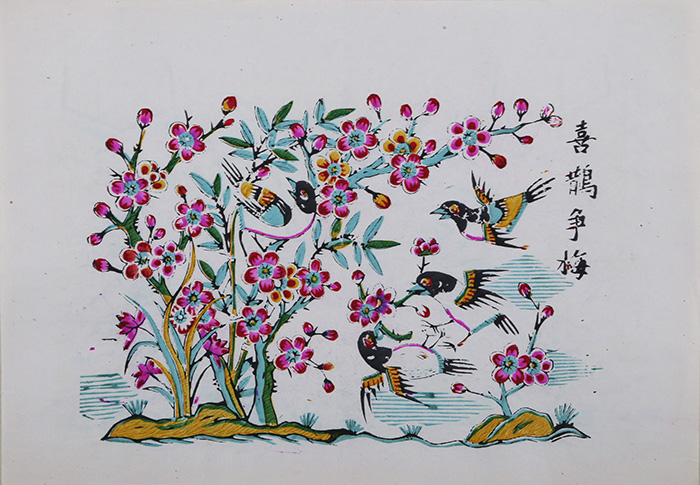 喜鹊争梅